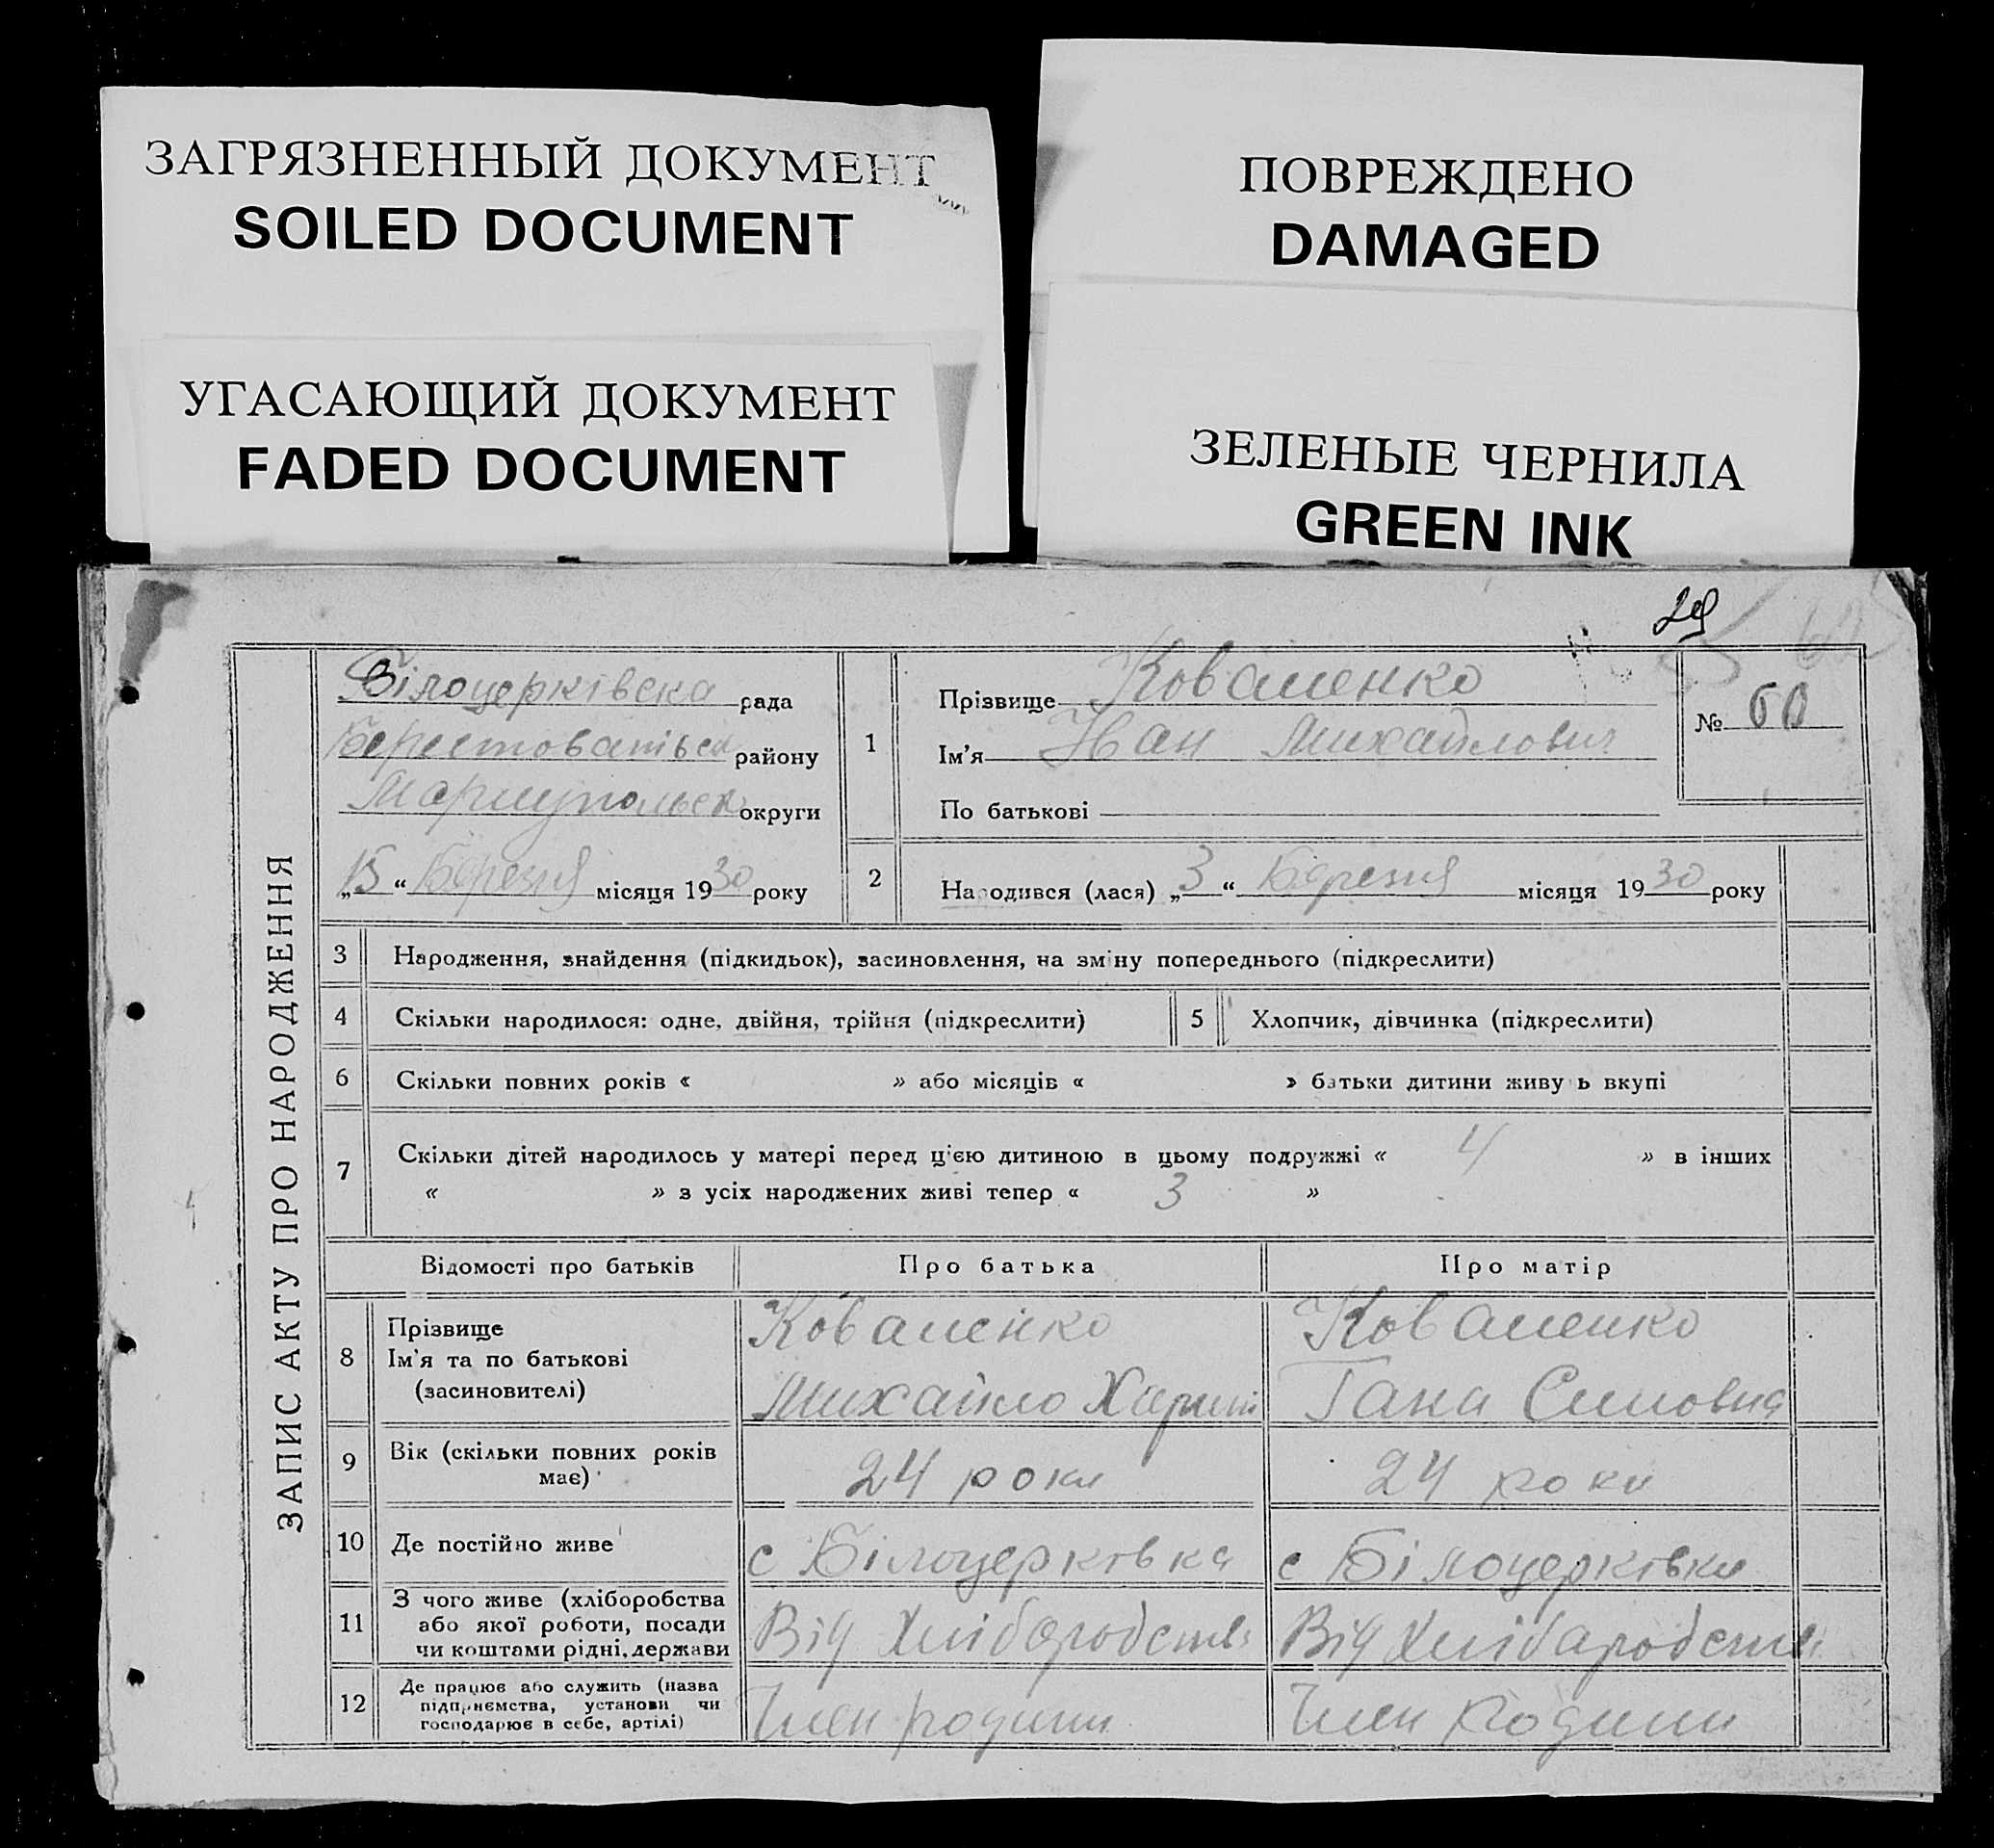 ЗАГРЯЗНЕННЫЙ ДОКУМЕНТ
SOILED DOCUMENT
УГАСАЮЩИЙ ДОКУМЕНТ
FADED DOCUMENT
ПОВРЕЖДЕНО
DAMAGED
ЗЕЛЕНЫЕ ЧЕРНИЛА
GREEN INK
29
ЗАПИС АКТУ ПРО НАРОДЖЕННЯ
Білоцерківска рада
району
округи
„15“ Березня місяця 1930 року
1
Прізвище Коваленко
Ім’я Иван Михайлович
По батькові
№ 60
2
Народився (лася) „3“ Березня місяця 1930 року
3 Народження, знайдення (підкидьок), засиновлення, на зміну попереднього (підкреслити)
4 Скільки народилося: одне, двійня, трійня (підкреслити) 5 Хлопчик, дівчинка (підкреслити)
6 Скільки повних років « » або місяців « » батьки дитини живуть вкупі
7 Скільки дітей народилось у матері перед цією дитиною в цьому подружжі « 4 » в інших
« » з усіх народжених живі тепер « 3 »
Відомості про батьків Про батька Про матір
8 Прізвище
Ім’я та по батькові
(засиновителі)
Коваленко
Михайло
Коваленко
Гана
9 Вік (скільки повних років
має)
24 роки 24 роки
10 Де постійно живе с Білоцерківка с Білоцерківка
11 З чого живе (хліборобства
або якої роботи, посади
чи коштами рідні, держави
Від Від
12 Де працює або служить (назва
підприємства, установи чи
господарює в себе, артілі)
Член родини Член родини